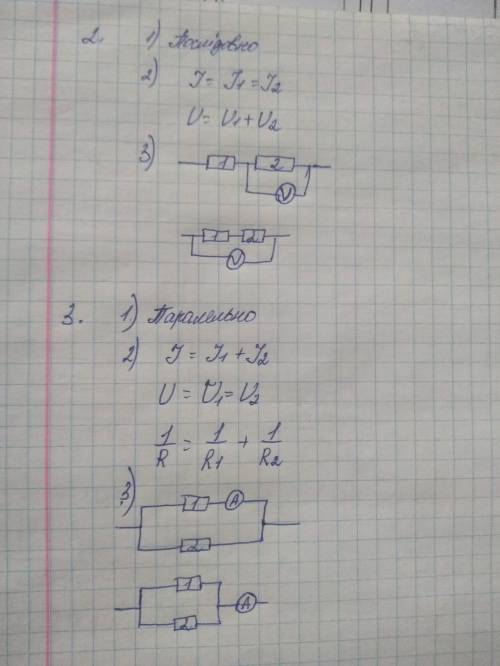 2. 1) Послідовно
2) I = I1 = I2
U = U1 + U2
3) 1 2
V
1 2
V
3. 1) Паралельно
2) I = I1 + I2
U = U1 = U2
1/R = 1/R1 + 1/R2
3) 1 A
2
1
2 A